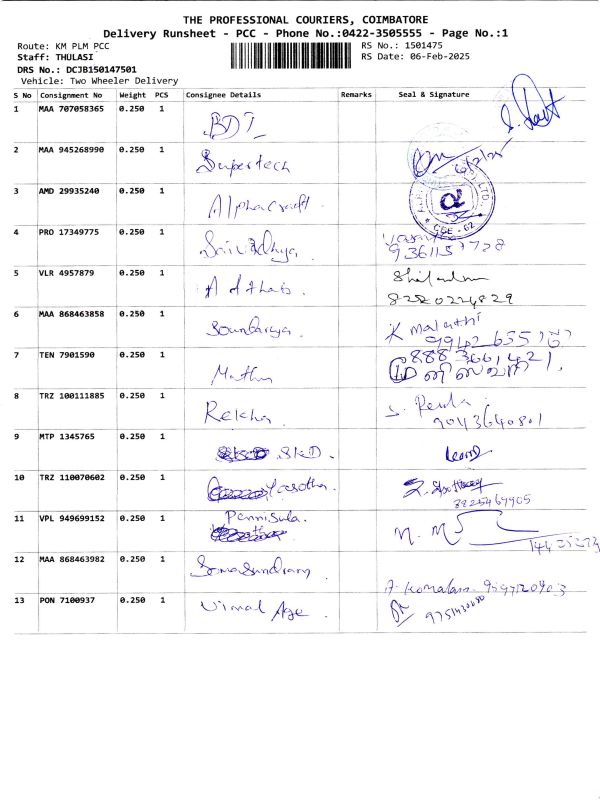 THE PROFESSIONAL COURIERS, COIMBATORE
Delivery Runsheet - PCC - Phone No.:0422-3505555 - Page No.:1
Route: KM PLM PCC RS No.: 1501475
Staff: THULASI RS Date: 06-Feb-2025
DRS No.: DCJB150147501
Vehicle: Two Wheeler Delivery
S No Consignment No Weight PCS Consignee Details Remarks Seal & Signature
1 MAA 707058365 0.250 1 BDT
2 MAA 945268990 0.250 1 Supertech 6/2/25
3 AMD 29935240 0.250 1 Alphacraft α CBE - 02
4 PRO 17349775 0.250 1
5 VLR 4957879 0.250 1
8220224829
6 MAA 868463858 0.250 1 Soundarya K Malathi
7 TEN 7901590 0.250 1 Muthu
8 TRZ 100111885 0.250 1 Rekha
9043640801
9 MTP 1345765 0.250 1 SKD
10 TRZ 110070602 0.250 1 Yasotha
11 VPL 949699152 0.250 1 Pennisula
12 MAA 868463982 0.250 1 Somasundram
A. Komalam
13 PON 7100937 0.250 1 Vimal Age